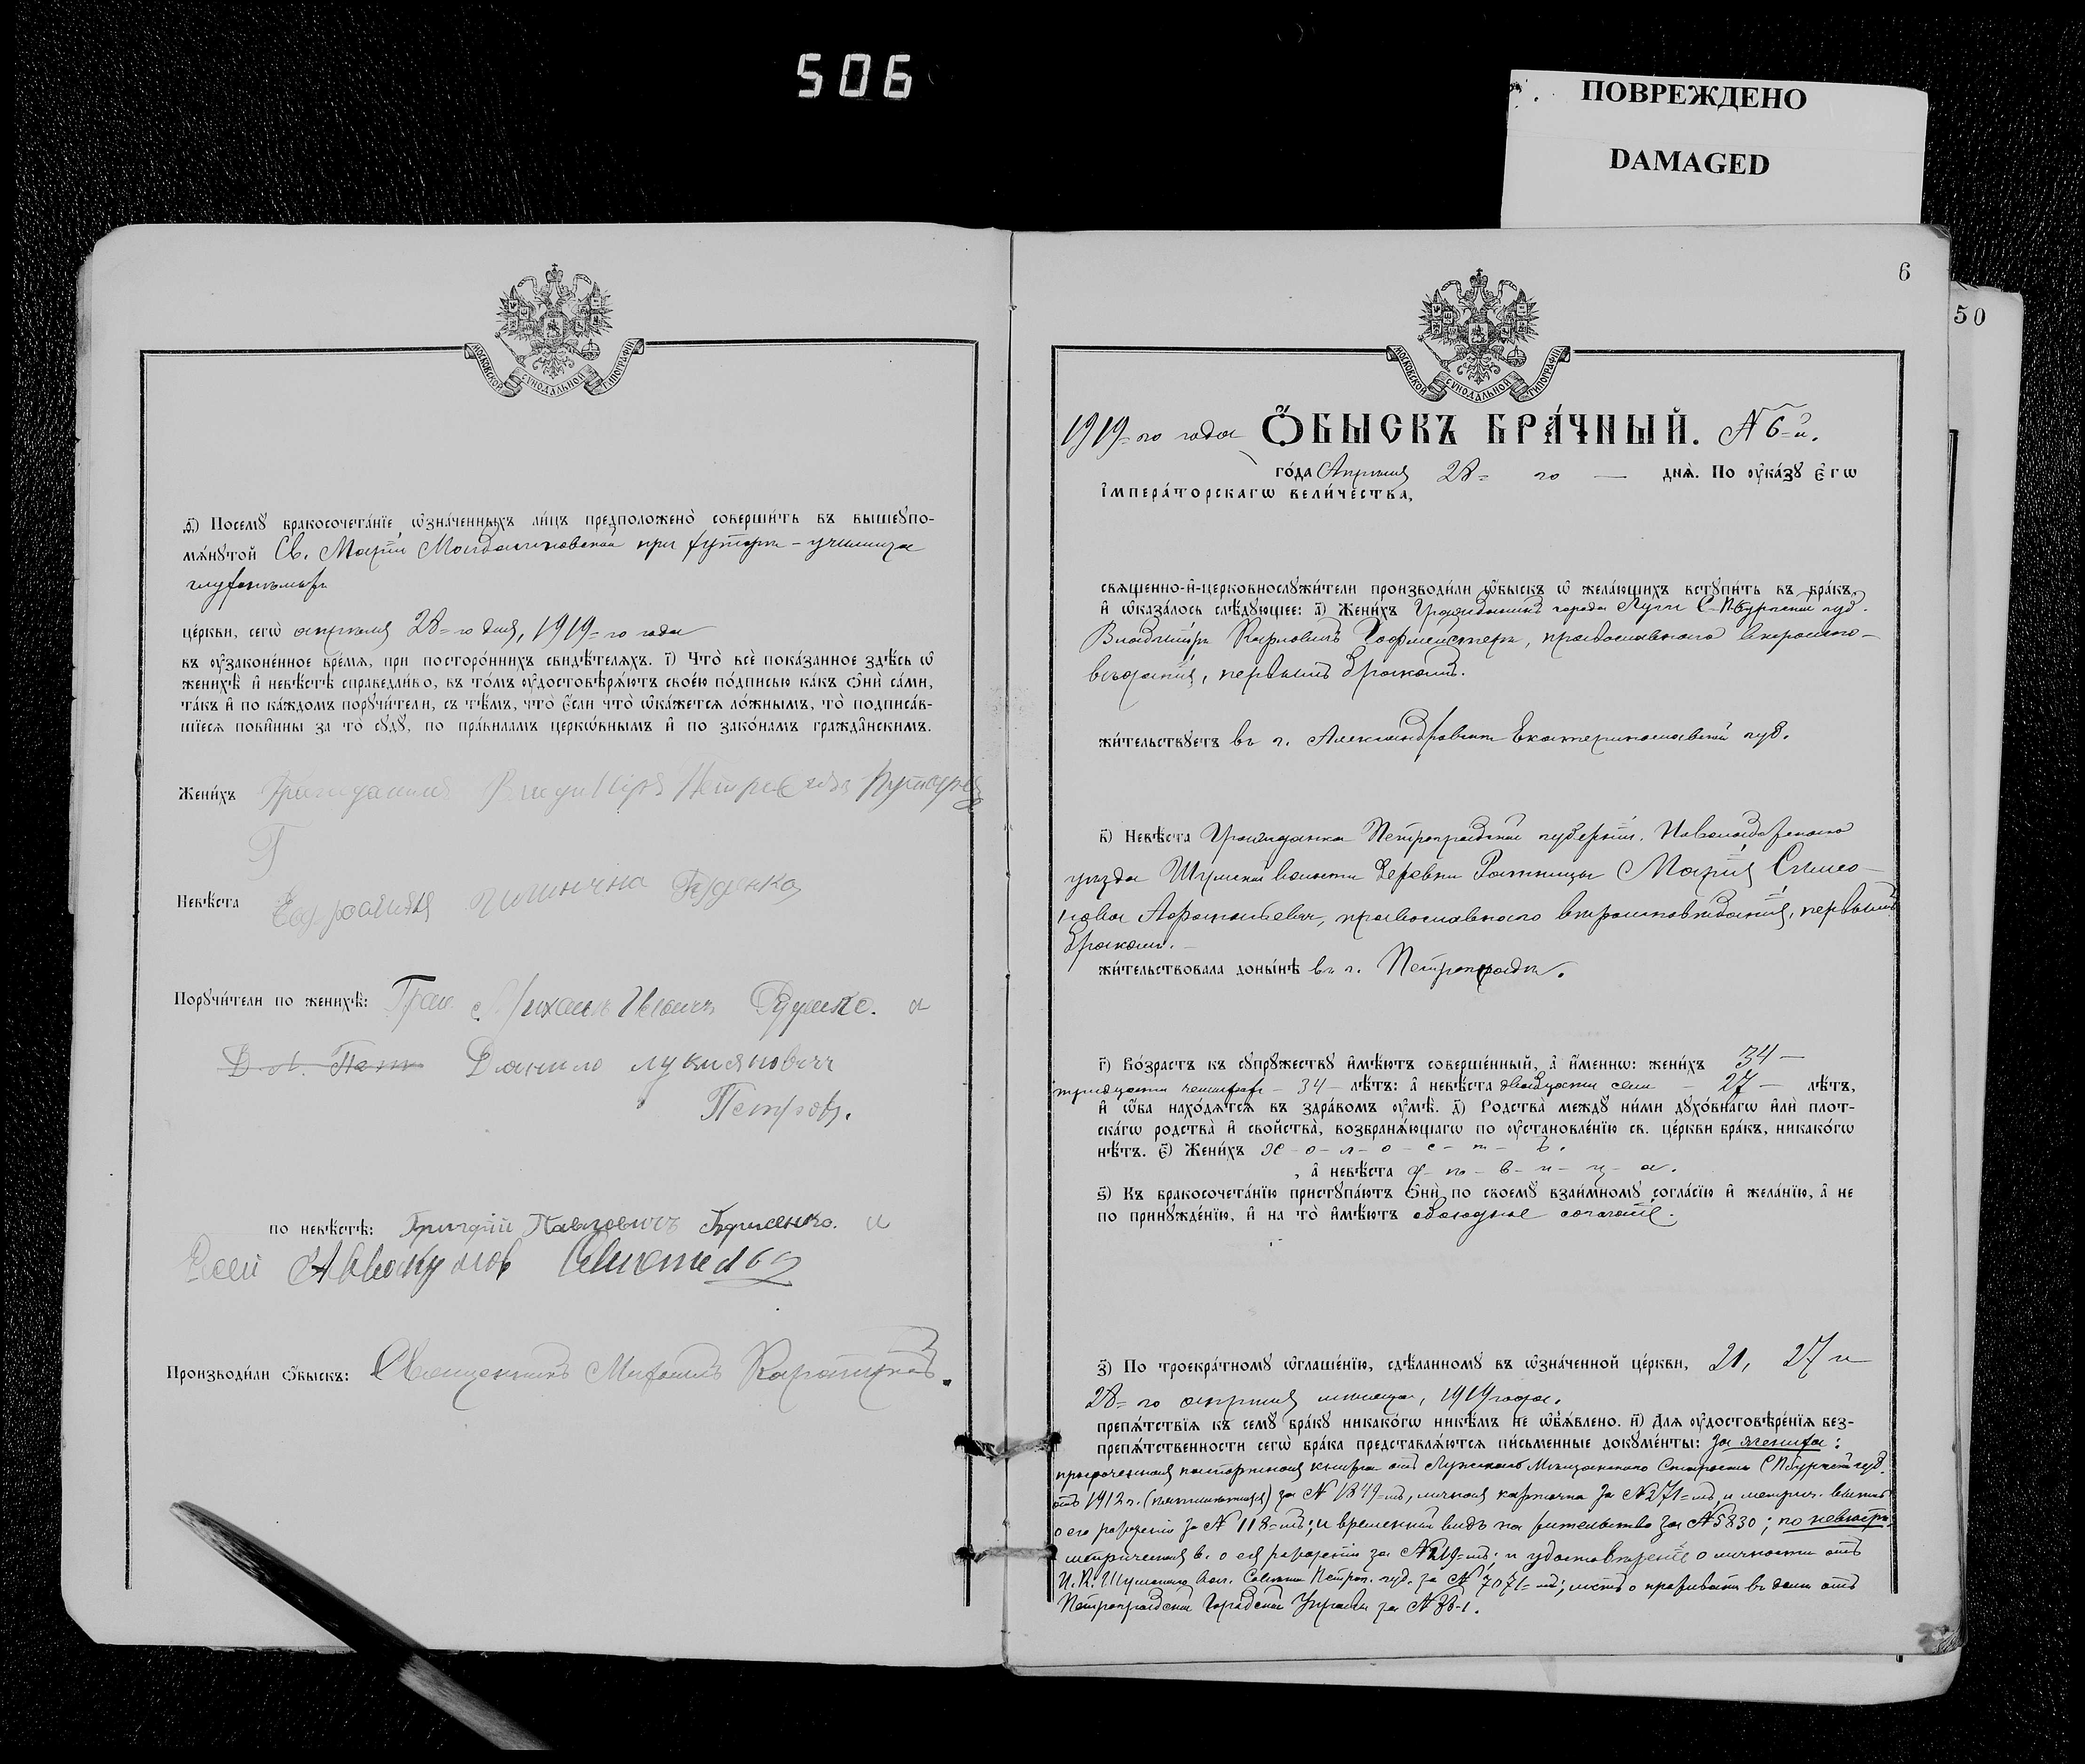 506
ПОВРЕЖДЕНО
DAMAGED
МОСКОВСКОЙ СѴНОДАЛЬНОЙ ТИПОГРАФІИ
ѳ҃) Посемꙋ бракосочета́нїе ѡ҆зна́ченныхъ ли́цъ предположено̀ соверши́ть въ вышеꙋпо-
мѧ́нꙋтой Св. Маріи Магдалиновской при хуторѣ - училища
глухонѣмыхъ
це́ркви, сегѡ̀ апрѣля 28=го дня, 1919=го года
въ ᲂу҆зако́ненное вре́мѧ, при посторо́ннихъ свидѣ́телѧхъ. і҃) Что̀ всѐ пока́занное здѣ́сь ѡ҆
женихѣ̀ и҆ невѣ́стѣ справедли́во, въ то́мъ ᲂу҆достовѣрѧ́ютъ свое́ю по́дписью ка́къ ѻ҆нѝ са́ми,
та́къ и҆ по ка́ждомъ порꙋчи́тели, съ тѣ́мъ, что̀ є҆́сли что̀ ѡ҆ка́жетсѧ ло́жнымъ, то̀ подписа́в-
шїесѧ пови́нны за то̀ сꙋдꙋ̀, по пра́виламъ церкѡ́внымъ и҆ по зако́намъ гражда̑нскимъ.
Жени́хъ Гражданинъ Владиміръ Петровичъ
Г
Невѣ́ста Ефросинія Руденко
Порꙋчи́тели по женихѣ̀: Граж. Михаилъ Ивановичъ Руденко. и
Д. Л. Пет Данило Лукияновичъ
Петровъ.
по невѣ́стѣ: Григорій Павловичъ Борисенко. и
Авакумовъ
Производи́ли ѻ҆́быскъ: Священникъ Михаилъ
6
50
МОСКОВСКОЙ СѴНОДАЛЬНОЙ ТИПОГРАФІИ
1919=го года Ѻ҆́БЫСКЪ БРА́ЧНЫЙ. № 6=й.
го́да Апрѣля 28= го — днѧ̀. По ᲂу҆ка́зꙋ Є҆гѡ̀
І҆мпера́торскагѡ вели́чества,
свѧще́нно-и҆-церковнослꙋжи́тели производи́ли ѻ҆́быскъ ѡ҆ жела́ющихъ встꙋпи́ть въ бра́къ,
и҆ ѡ҆каза́лось слѣ́дꙋющее: а҃) Жени́хъ Гражданинъ города Луги С-Пбургской губ.
Владиміръ Карловичъ Гофмейстеръ, православнаго вѣроиспо-
вѣданія, первымъ бракомъ.
жи́тельствꙋетъ въ г. Александровскѣ Екатеринославской губ.
в҃) Невѣ́ста Гражданка Петроградской губерніи. Новоладожскаго
уѣзда Шумской волости деревни Ратницы Марія Симео-
нова Афанасьева, православнаго вѣроисповѣданія, первымъ
бракомъ.
жи́тельствовала доны́нѣ въ г. Петроградѣ.
г҃) Во́зрастъ къ сꙋпрꙋ́жествꙋ и҆мѣ́ютъ соверше́нный, а҆ и҆́меннѡ: жени́хъ 34 —
тридцати четырехъ - 34 - лѣ́тъ: а҆ невѣ́ста двадцати семи - 27 - лѣ́тъ,
и҆ ѻ҆́ба нахо́дѧтсѧ въ здра́вомъ ᲂу҆мѣ̀. д҃) Родства̀ междꙋ̀ ни́ми дꙋхо́внагѡ и҆лѝ плот-
ска́гѡ родства̀ и҆ сво́йства̀, возбранѧ́ющагѡ по ᲂу҆становле́нїю св. це́ркви бра́къ, никако́гѡ
нѣ́тъ. є҃) Жени́хъ х-о-л-о-с-т-ъ.
, а҆ невѣ́ста д-ѣ-в-и-ц-а.
ѕ҃) Къ бракосочета́нїю пристꙋпа́ютъ ѻ҆нѝ по своемꙋ̀ взаи́мномꙋ согла́сїю и҆ жела́нїю, а҆ не
по принꙋжде́нїю, и҆ на то̀ и҆мѣ́ютъ обоюдное согласіе.
з҃) По троекра́тномꙋ ѡ҆глаше́нїю, сдѣ́ланномꙋ въ ѡ҆зна́ченной це́ркви, 21, 27 и
28=го апрѣля мѣсяца, 1919 года.
препѧ́тствїѧ къ семꙋ̀ бра́кꙋ никако́гѡ никѣ́мъ не ѡ҆бъѧ́влено. и҃) Длѧ ᲂу҆достовѣре́нїѧ без-
препѧ́тственности сегѡ̀ бра́ка представлѧ́ютсѧ пи́сьменные докꙋме́нты: за жениха:
просроченная паспортная книжка отъ Лужскаго Мѣщанскаго Старосты СПбургской губ.
отъ 1912 г. (пятилѣтняя) за № 1849=мъ, личная карточка за № 271=мъ, и метрич. выпись
о его рожденіи за № 118=мъ; и временный видъ на жительство за № 5830; по невѣстѣ:
метрическая в. о ея рожденіи за № 219=мъ; и удостовѣреніе о личности отъ
И. К. Шумскаго Вол. Совѣта Петрогр. губ. за № 7071=мъ; листъ о проживаніи въ домѣ отъ
Петроградской Городской Управы за № 36-1.